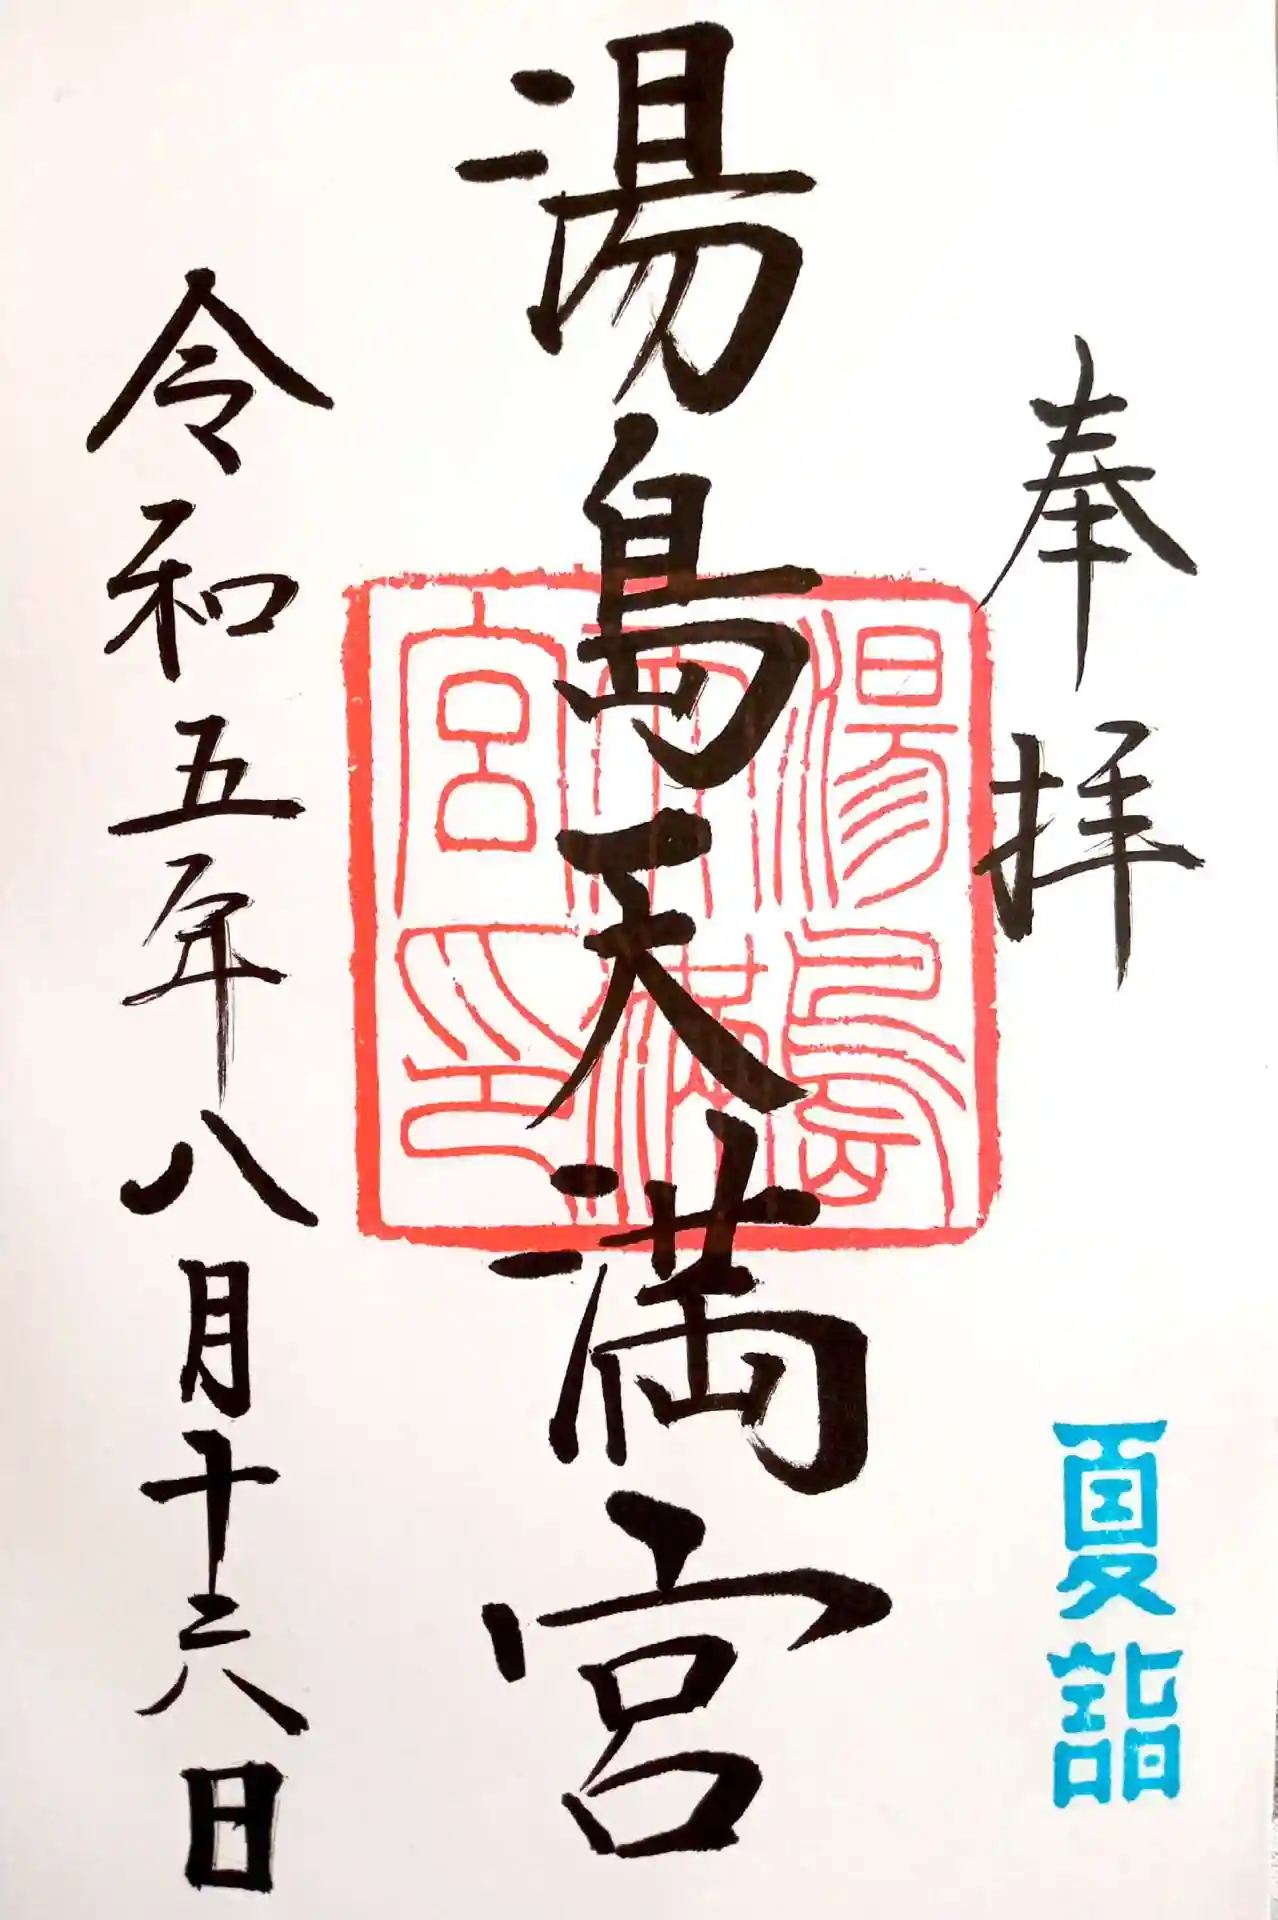 奉拝
夏詣
湯島天満宮
湯島
天満
宮印
令和五年八月十六日